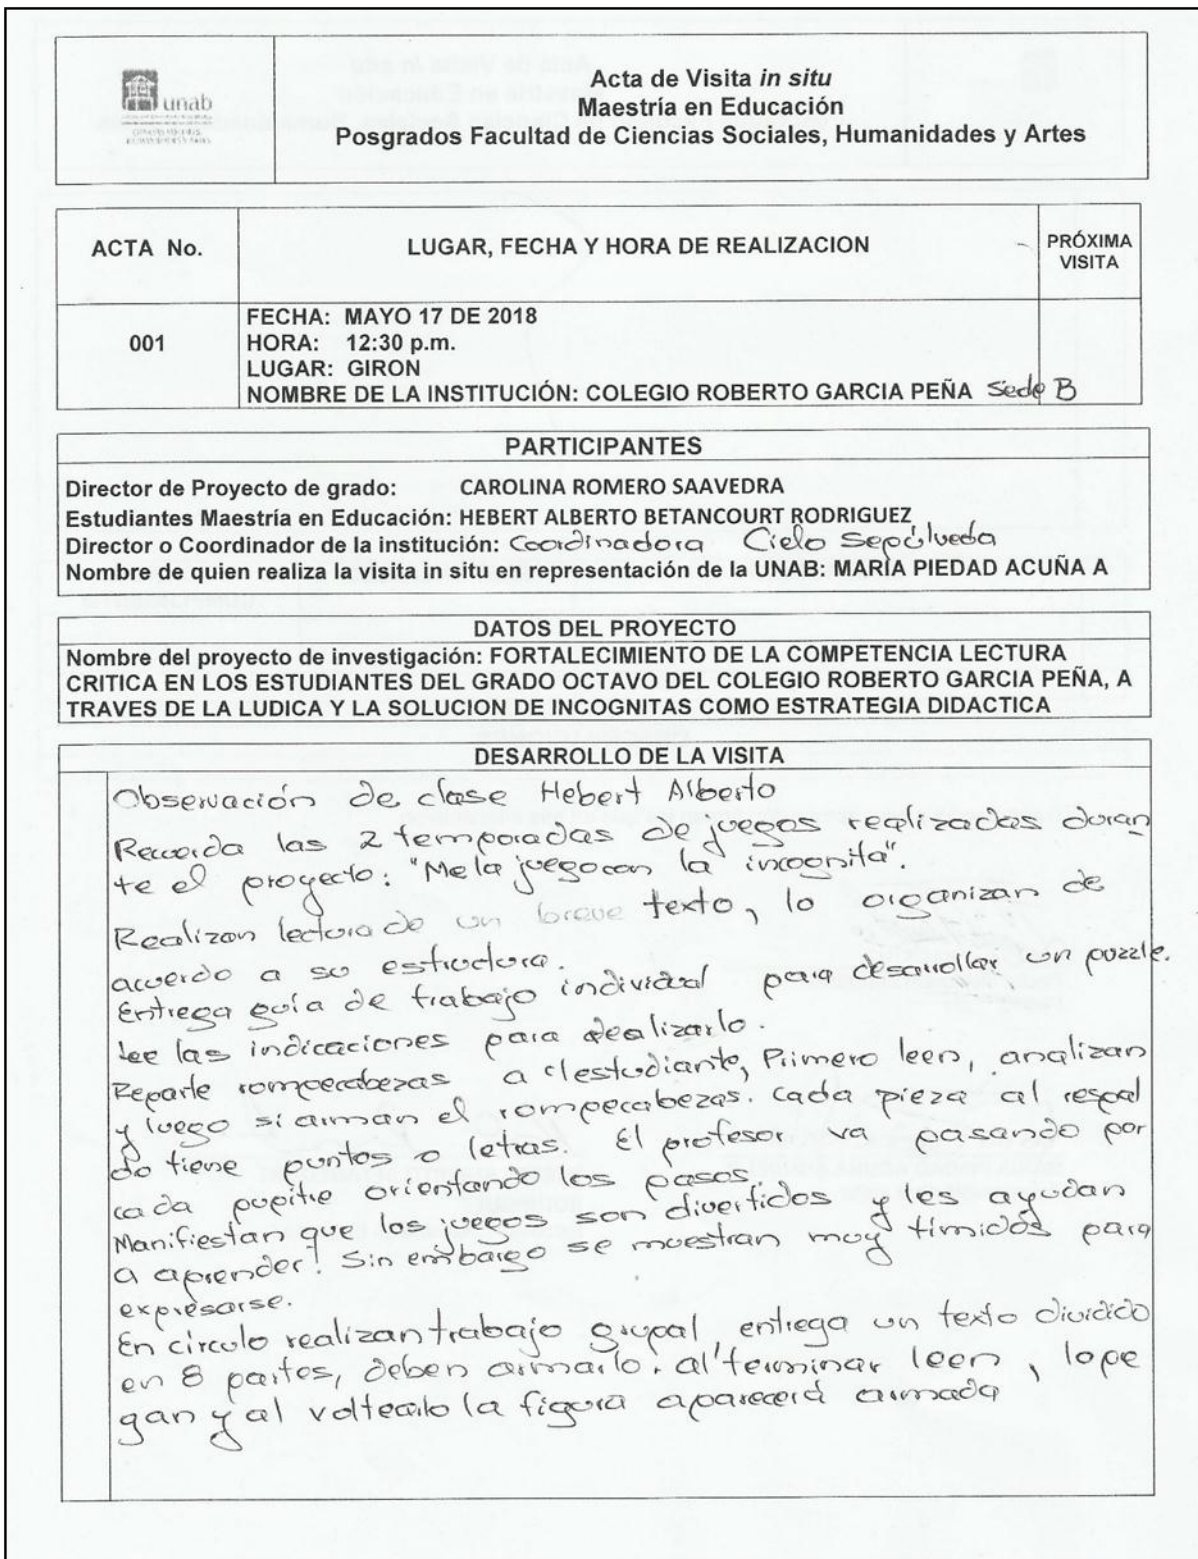 unab
Acta de Visita in situ
Maestría en Educación
Posgrados Facultad de Ciencias Sociales, Humanidades y Artes
ACTA No.
LUGAR, FECHA Y HORA DE REALIZACION
PRÓXIMA
VISITA
001
FECHA: MAYO 17 DE 2018
HORA: 12:30 p.m.
LUGAR: GIRON
NOMBRE DE LA INSTITUCIÓN: COLEGIO ROBERTO GARCIA PEÑA Sede B
PARTICIPANTES
Director de Proyecto de grado: CAROLINA ROMERO SAAVEDRA
Estudiantes Maestría en Educación: HEBERT ALBERTO BETANCOURT RODRIGUEZ
Director o Coordinador de la institución: Coordinadora Cielo Sepúlveda
Nombre de quien realiza la visita in situ en representación de la UNAB: MARÍA PIEDAD ACUÑA A
DATOS DEL PROYECTO
Nombre del proyecto de investigación: FORTALECIMIENTO DE LA COMPETENCIA LECTURA
CRITICA EN LOS ESTUDIANTES DEL GRADO OCTAVO DEL COLEGIO ROBERTO GARCIA PEÑA, A
TRAVES DE LA LUDICA Y LA SOLUCION DE INCOGNITAS COMO ESTRATEGIA DIDACTICA
DESARROLLO DE LA VISITA
Observación de clase Hebert Alberto
Recuerda las 2 temporadas de juegos realizadas duran
te el proyecto: "Me la juego con la incognita".
Realizan lectura de un breve texto, lo organizan de
acuerdo a su estructura.
Entrega guía de trabajo individual para desarrollar un puzzle.
Lee las indicaciones para realizarlo.
Reparte rompecabezas a c/estudiante, Primero leen, analizan
y luego si arman el rompecabezas. Cada pieza al respal
do tiene puntos o letras. El profesor va pasando por
cada pupitre orientando los pasos.
Manifiestan que los juegos son divertidos y les ayudan
a aprender! Sin embargo se muestran muy tímidos para
expresarse.
En círculo realizan trabajo grupal, entrega un texto dividido
en 8 partes, deben armarlo. al terminar leen, lo pe
gan y al voltearlo la figura aparecerá armada